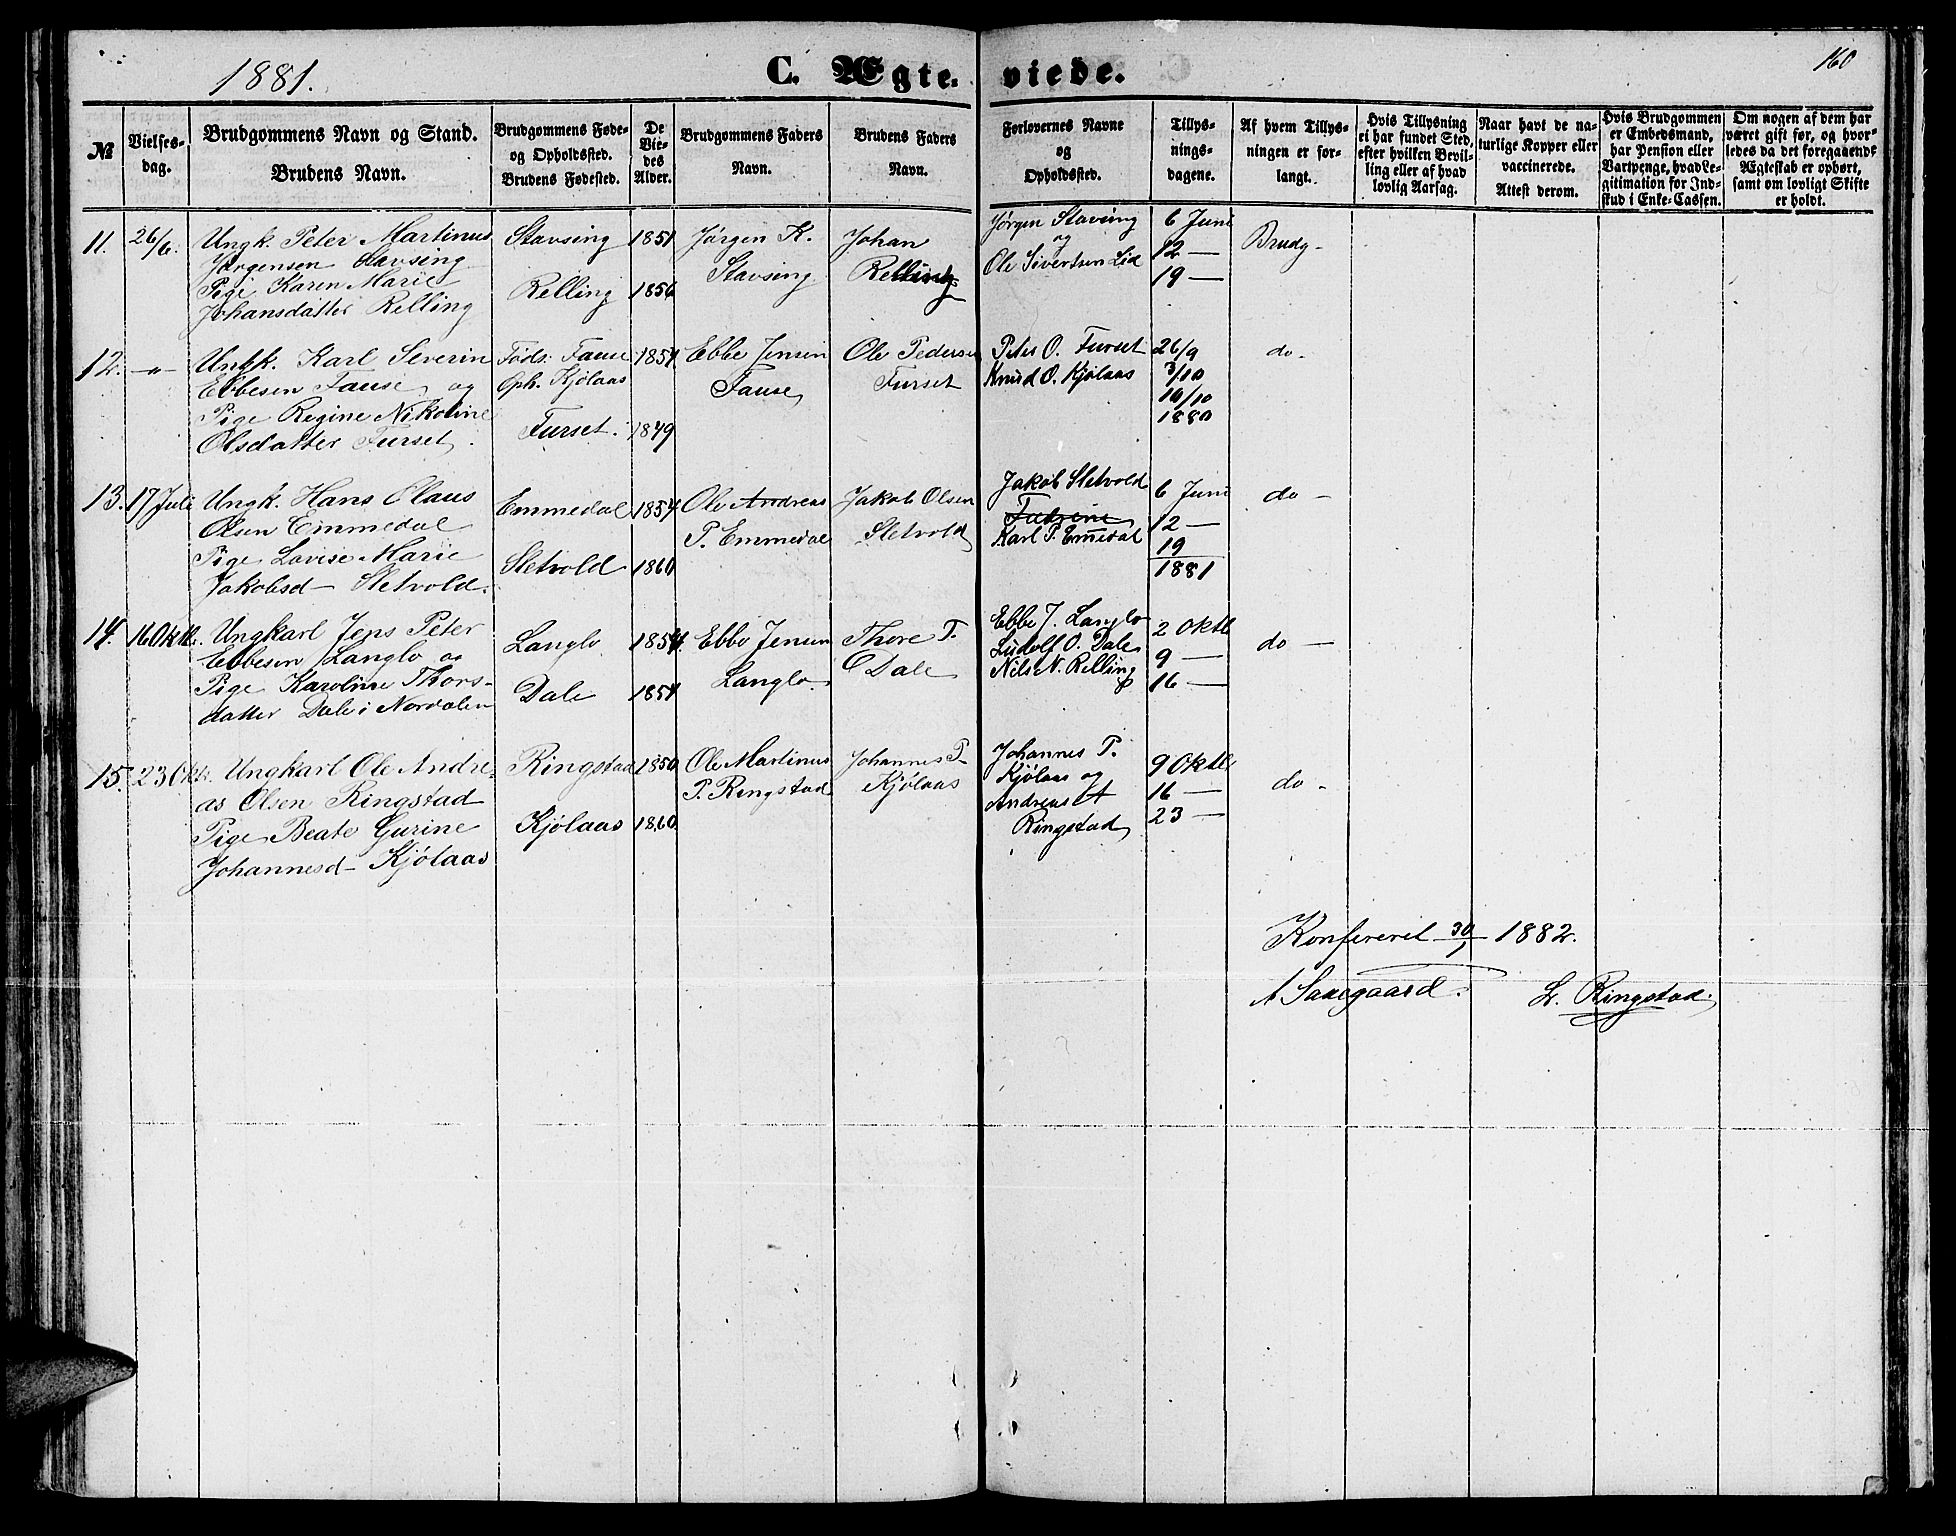 1881.
C. Ægte-
viede.
160
№
Vielses-
dag.
Brudgommens Navn og Stand.
Brudens Navn.
Brudgommens Føde-
og Opholdsfted.
Brudens Fødested.
De
Vie-
des
Alder.
Brudgommens Faders
Navn.
Brudens Faders
Navn.
Forlovernes Navne
og
Opholdssted.
Tillys-
nings-
dagene.
Af hvem Tillys-
ningen er for-
langt.
Hvis Tillysning
ei har fundet Sted,
efter hvilken Bevil-
ling eller af hvad
lovlig Aarsag.
Naar havt de na-
turlige Kopper eller
vaccinerede.
Attest derom.
Hvis Brudgommen
er Embedsmand,
har Pension eller
Vartpenge, hvad Le-
gitimation for Ind-
skud i Enke-Cassen.
Om nogen af dem har
været gift før, og hvor-
ledes da det foregaaende
Ægteskab er ophørt,
samt om lovligt Skifte
er holdt.
11.
26/6.
Ungk. Peter Martinus
Jørgensen Stavseng
Pige Karen Marie
Johansdatter Relling
Stavseng
Relling
1851
1856
Jørgen K.
Stavseng
Johan
Relling
Jørgen Stavseng
og
Ole Sivertsen Lid
6 Juni
12 —
19 —
Brudg-
12.
-"-
Ungk. Karl Severin
Ebbesen Fause og
Pige Regine Nikoline
Olsdatter Furset.
Føds. Fause
Oph. Kjølaas
Furset.
1854
1849
Ebbe Jensen
Fause
Ole Pedersen
Furset
Peter O. Furset
Knud O. Kjølaas
26/9
3/10
10/10
1880
do-
13.
17 Juli
Ungk. Hans Olaus
Olsen Emmedal
Pige Lovise Marie
Jakobsd- Sletvold.
Emmedal
Sletvold
1854
1860
Ole Andreas
P. Emmedal
Jakob Olsen
Sletvold
Jakob Sletvold
Karl P. Emedal
6 Juni
12 —
19
1881
do -
14.
16 Oktb.
Ungkarl Jens Peter
Ebbesen Langlo og
Pige Karoline Thors-
datter Dale i Nordalen
Langlo
Dale
1854
1854
Ebbe Jensen
Langlo.
Thore T.
Dale
Ebbe J. Langlo
Ludolf O. Dale
Nils N. Relling
2 Oktb
9 —
16 —
do —
15.
23 Okt.
Ungkarl Ole Andre-
as Olsen Ringstad
Pige Beate Gurine
Johannesd- Kjølaas
Ringstad
Kjølaas
1850
1860.
Ole Martinus
P. Ringstad
Johannes P.
Kjølaas
Johannes P.
Kjølaas og
Andreas A
Ringstad
9 Oktb
16 —
23 —
do -
Konfereret 30/1 1882.
A Saaegaard.
L. Ringstad.